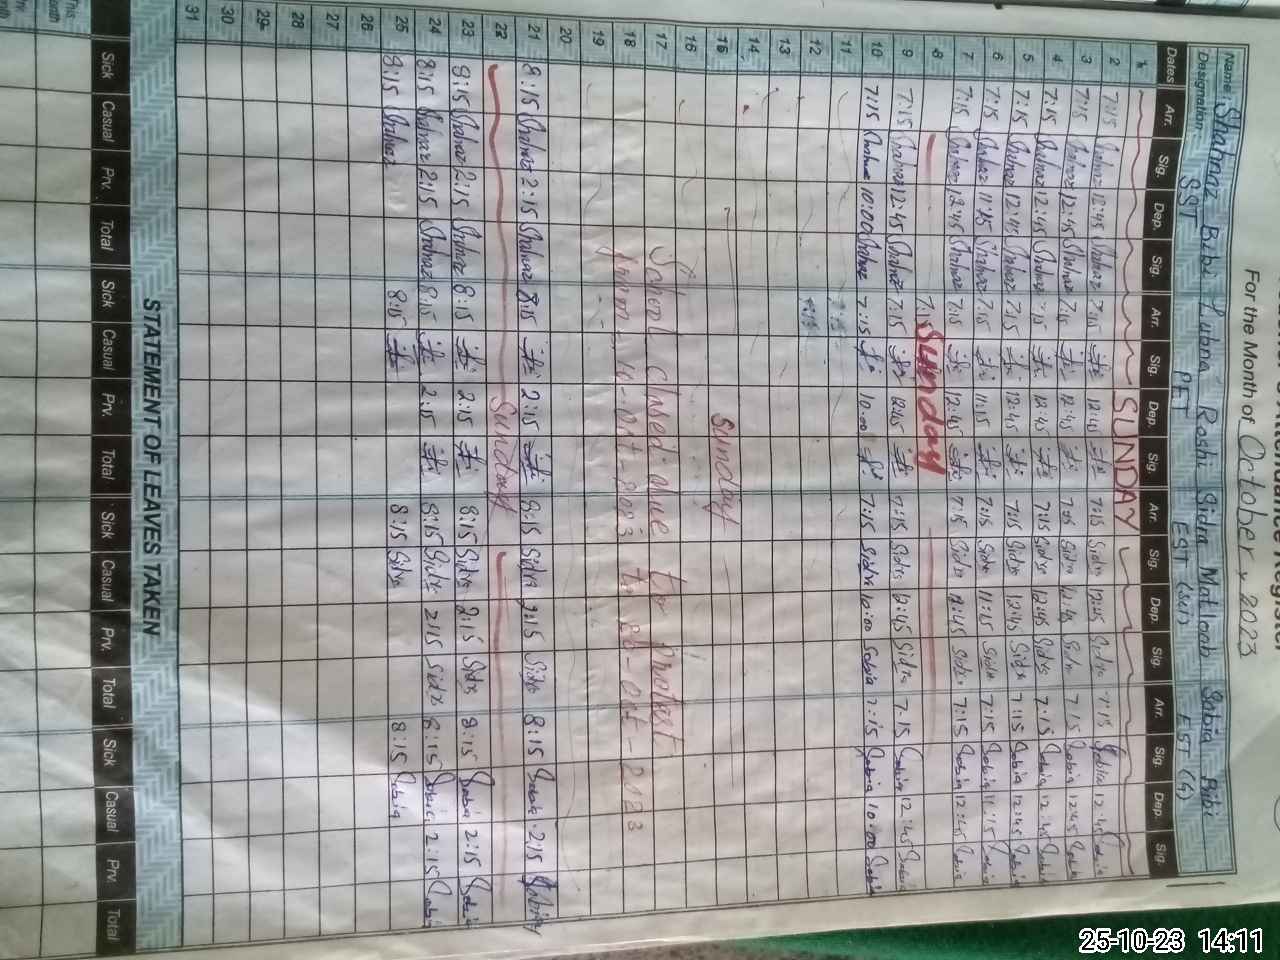 For the Month of October, 2023
Name: Shahnaz Bibi Lubna Roshi Sidra Matloob Sabia Bibi
Designation: SST PET EST (Sci) EST (G)
Dates Arr. Sig. Dep. Sig. Arr. Sig. Dep. Sig. Arr. Sig. Dep. Sig. Arr. Sig. Dep. Sig.
1 SUNDAY
2 7:15 Shahnaz 12:45 Shahnaz 7:15 12:45 7:15 Sidra 12:45 Sidra 7:15 Sabia 12:45 Sabia
3 7:15 Shahnaz 12:45 Shahnaz 7:15 12:45 7:15 Sidra 12:45 Sidra 7:15 Sabia 12:45 Sabia
4 7:15 Shahnaz 12:45 Shahnaz 7:15 12:45 7:15 Sidra 12:45 Sidra 7:15 Sabia 12:45 Sabia
5 7:15 Shahnaz 12:45 Shahnaz 7:15 12:45 7:15 Sidra 12:45 Sidra 7:15 Sabia 12:45 Sabia
6 7:15 Shahnaz 11:15 Shahnaz 7:15 11:15 7:15 Sidra 11:15 Sidra 7:15 Sabia 11:15 Sabia
7 7:15 Shahnaz 12:45 Shahnaz 7:15 12:45 7:15 Sidra 12:45 Sidra 7:15 Sabia 12:45 Sabia
8 Sunday
9 7:15 Shahnaz 12:45 Shahnaz 7:15 12:45 7:15 Sidra 12:45 Sidra 7:15 Sabia 12:45 Sabia
10 7:15 Shahnaz 10:00 Shahnaz 7:15 10:00 7:15 Sidra 10:00 Sabia 7:15 Sabia 10:00 Sabia
11
12
13
14
15 Sunday
16
17 School closed due to Protest
18 from 10-oct-2023 to 20-oct-2023
19
20
21 8:15 Shahnaz 2:15 Shahnaz 8:15 2:15 8:15 Sidra 2:15 Sidra 8:15 Sabia 2:15 Sabia
22 Sunday
23 8:15 Shahnaz 2:15 Shahnaz 8:15 2:15 8:15 Sidra 2:15 Sidra 8:15 Sabia 2:15 Sabia
24 8:15 Shahnaz 2:15 Shahnaz 8:15 2:15 8:15 Sidra 2:15 Sidra 8:15 Sabia 2:15 Sabia
25 8:15 Shahnaz 8:15 8:15 Sidra 8:15 Sabia
26
27
28
29
30
31
STATEMENT OF LEAVES TAKEN
Sick Casual Prv. Total Sick Casual Prv. Total Sick Casual Prv. Total Sick Casual Prv. Total
25-10-23 14:11